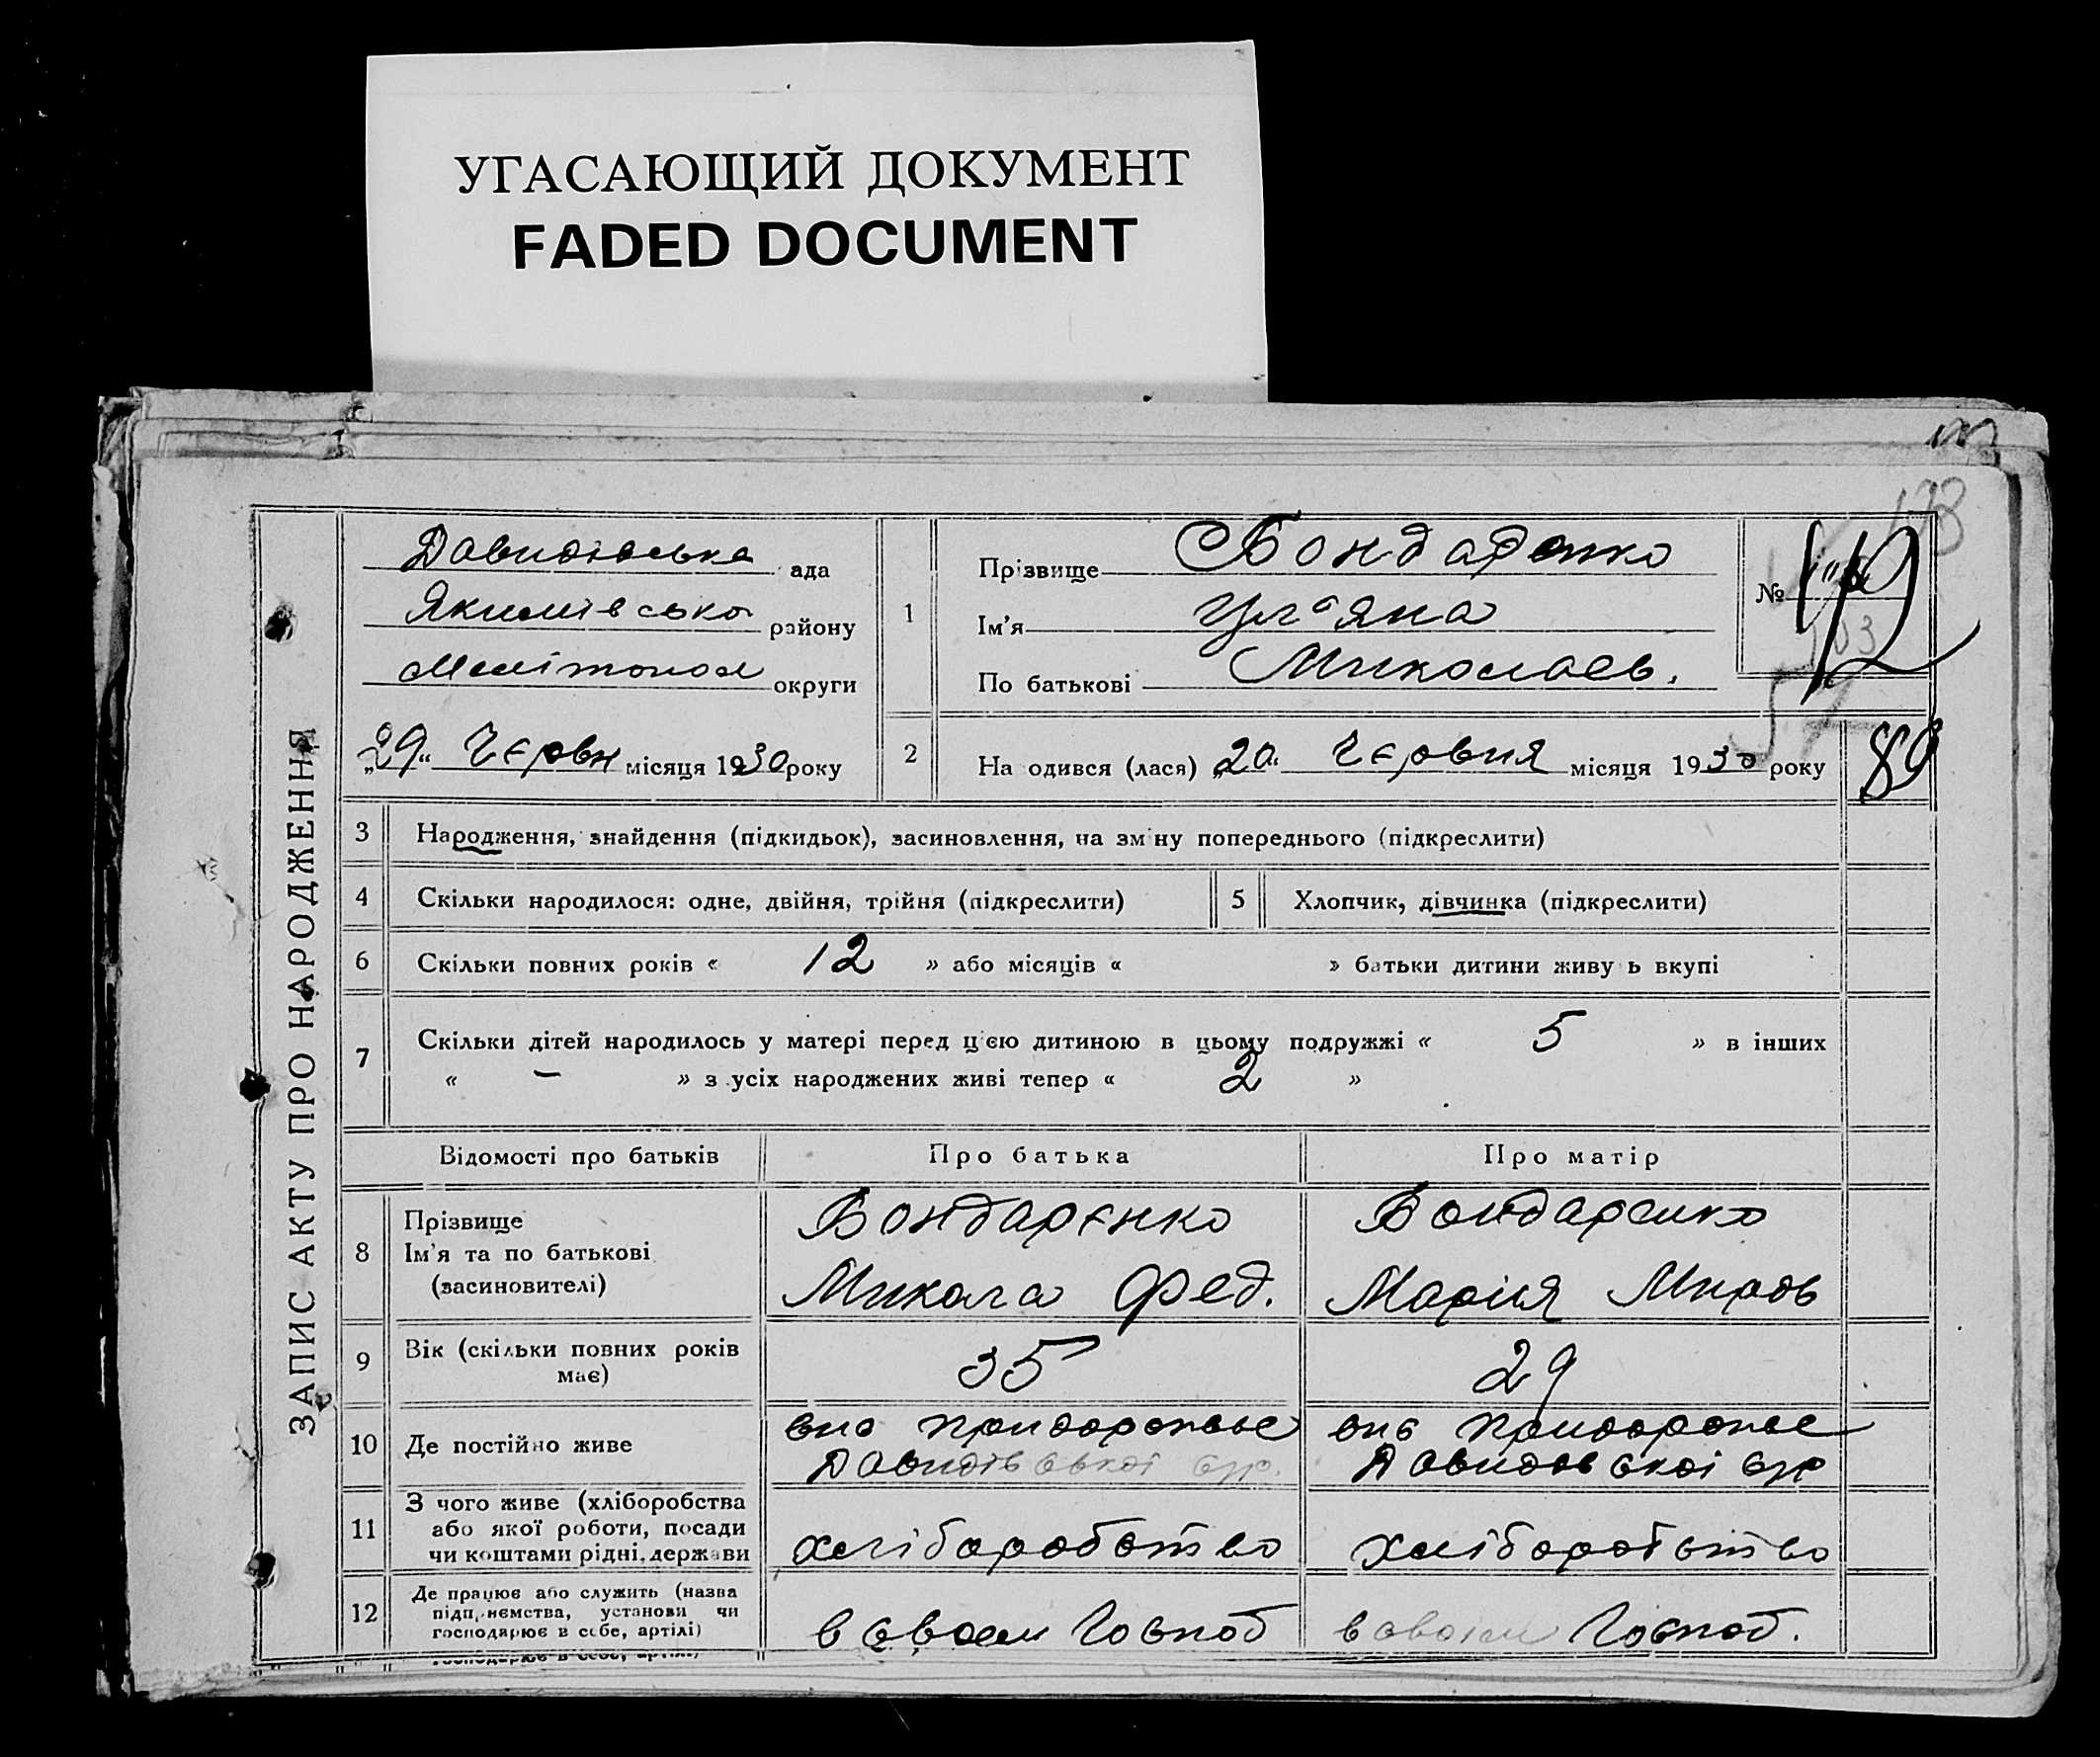 УГАСАЮЩИЙ ДОКУМЕНТ
FADED DOCUMENT
ЗАПИС АКТУ ПРО НАРОДЖЕННЯ
Давидівська ада
Якимівсько району
Мелітопол округи
„29“ Червн місяця 1930 року
1
Прізвище Бондаренко
Ім'я Ул'яна
По батькові Миколаєв.
№
2
На одився (лася) „20“ Червня місяця 1930 року
89
3 Народження, знайдення (підкидьок), засиновлення, на зм ну попереднього (підкреслити)
4 Скільки народилося: одне, двійня, трійня (підкреслити)
5 Хлопчик, дівчинка (підкреслити)
6 Скільки повних років « 12 » або місяців « » батьки дитини живу ь вкупі
7 Скільки дітей народилось у матері перед цією дитиною в цьому подружжі « 5 » в інших
« — » з усіх народжених живі тепер « 2 »
Відомості про батьків Про батька Про матір
8
Прізвище
Ім'я та по батькові
(засиновителі)
Бондарєнко
Микола Фед.
Бондаренко
Мария
9
Вік (скільки повних років
має)
35
29
10 Де постійно живе
Придорожнє
Давидівської с/р.
Придорожнє
Давидовскої с/р
11
З чого живе (хліборобства
або якої роботи, посади
чи коштами рідні, держави
хліборобство
хліборобство
12
Де працює або служить (назва
підпрнємства, установи чи
господарює в себе, артілі)
в своем Господ
в своїм Господ.